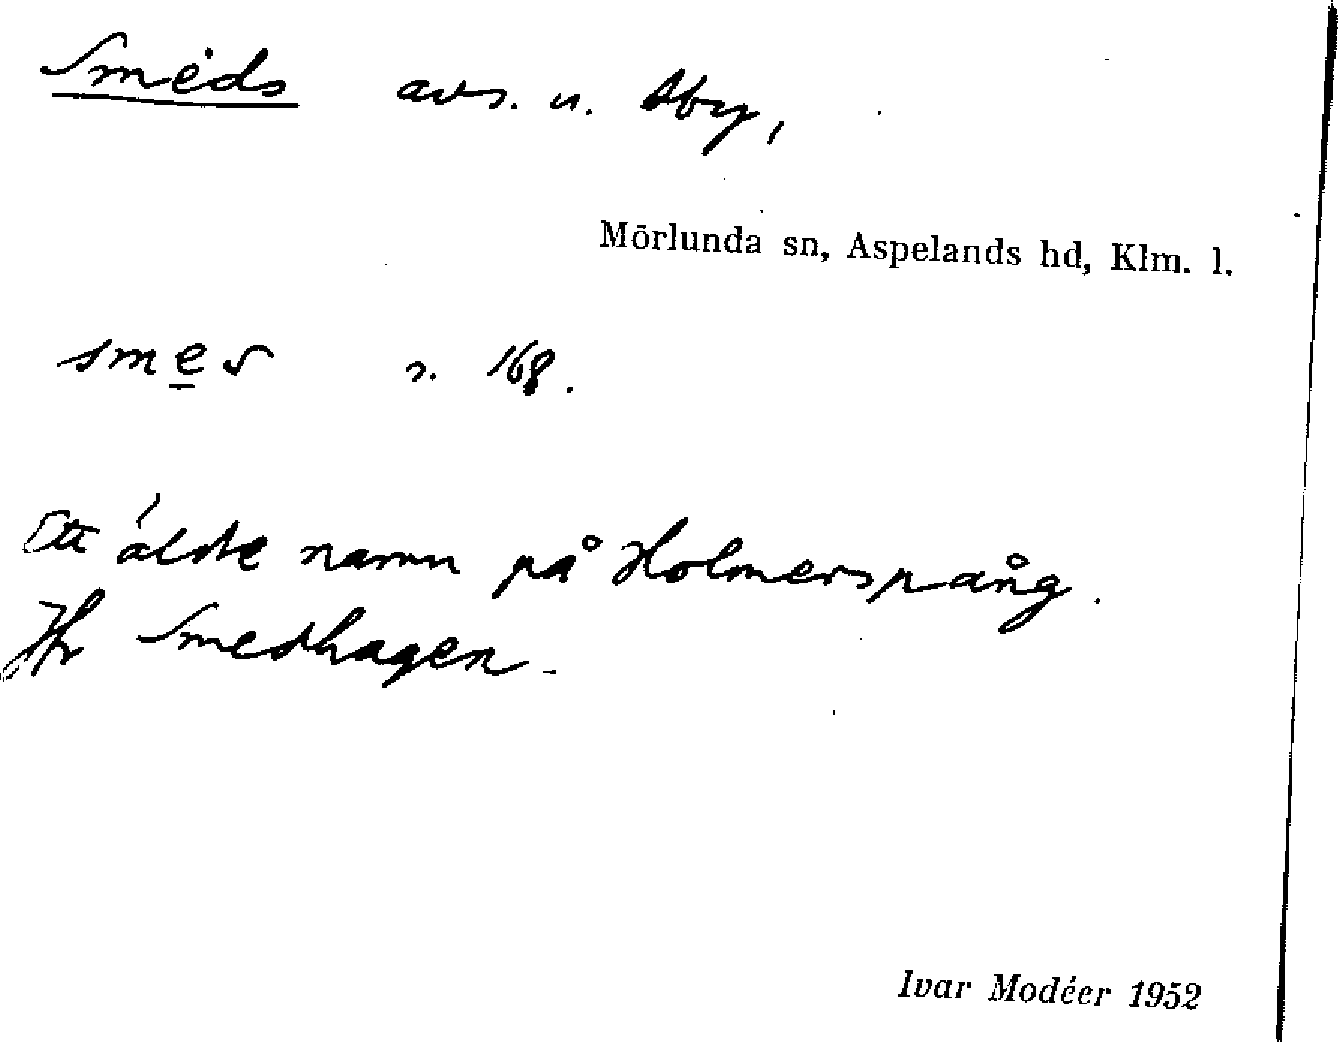 Smeds avs. u. Åby,
Mörlunda sn, Aspelands hd, Klm. l.
smes s. 168.
Ett äldre namn på Holmerspång.
Jfr Smedhagen.
Ivar Modéer 1952